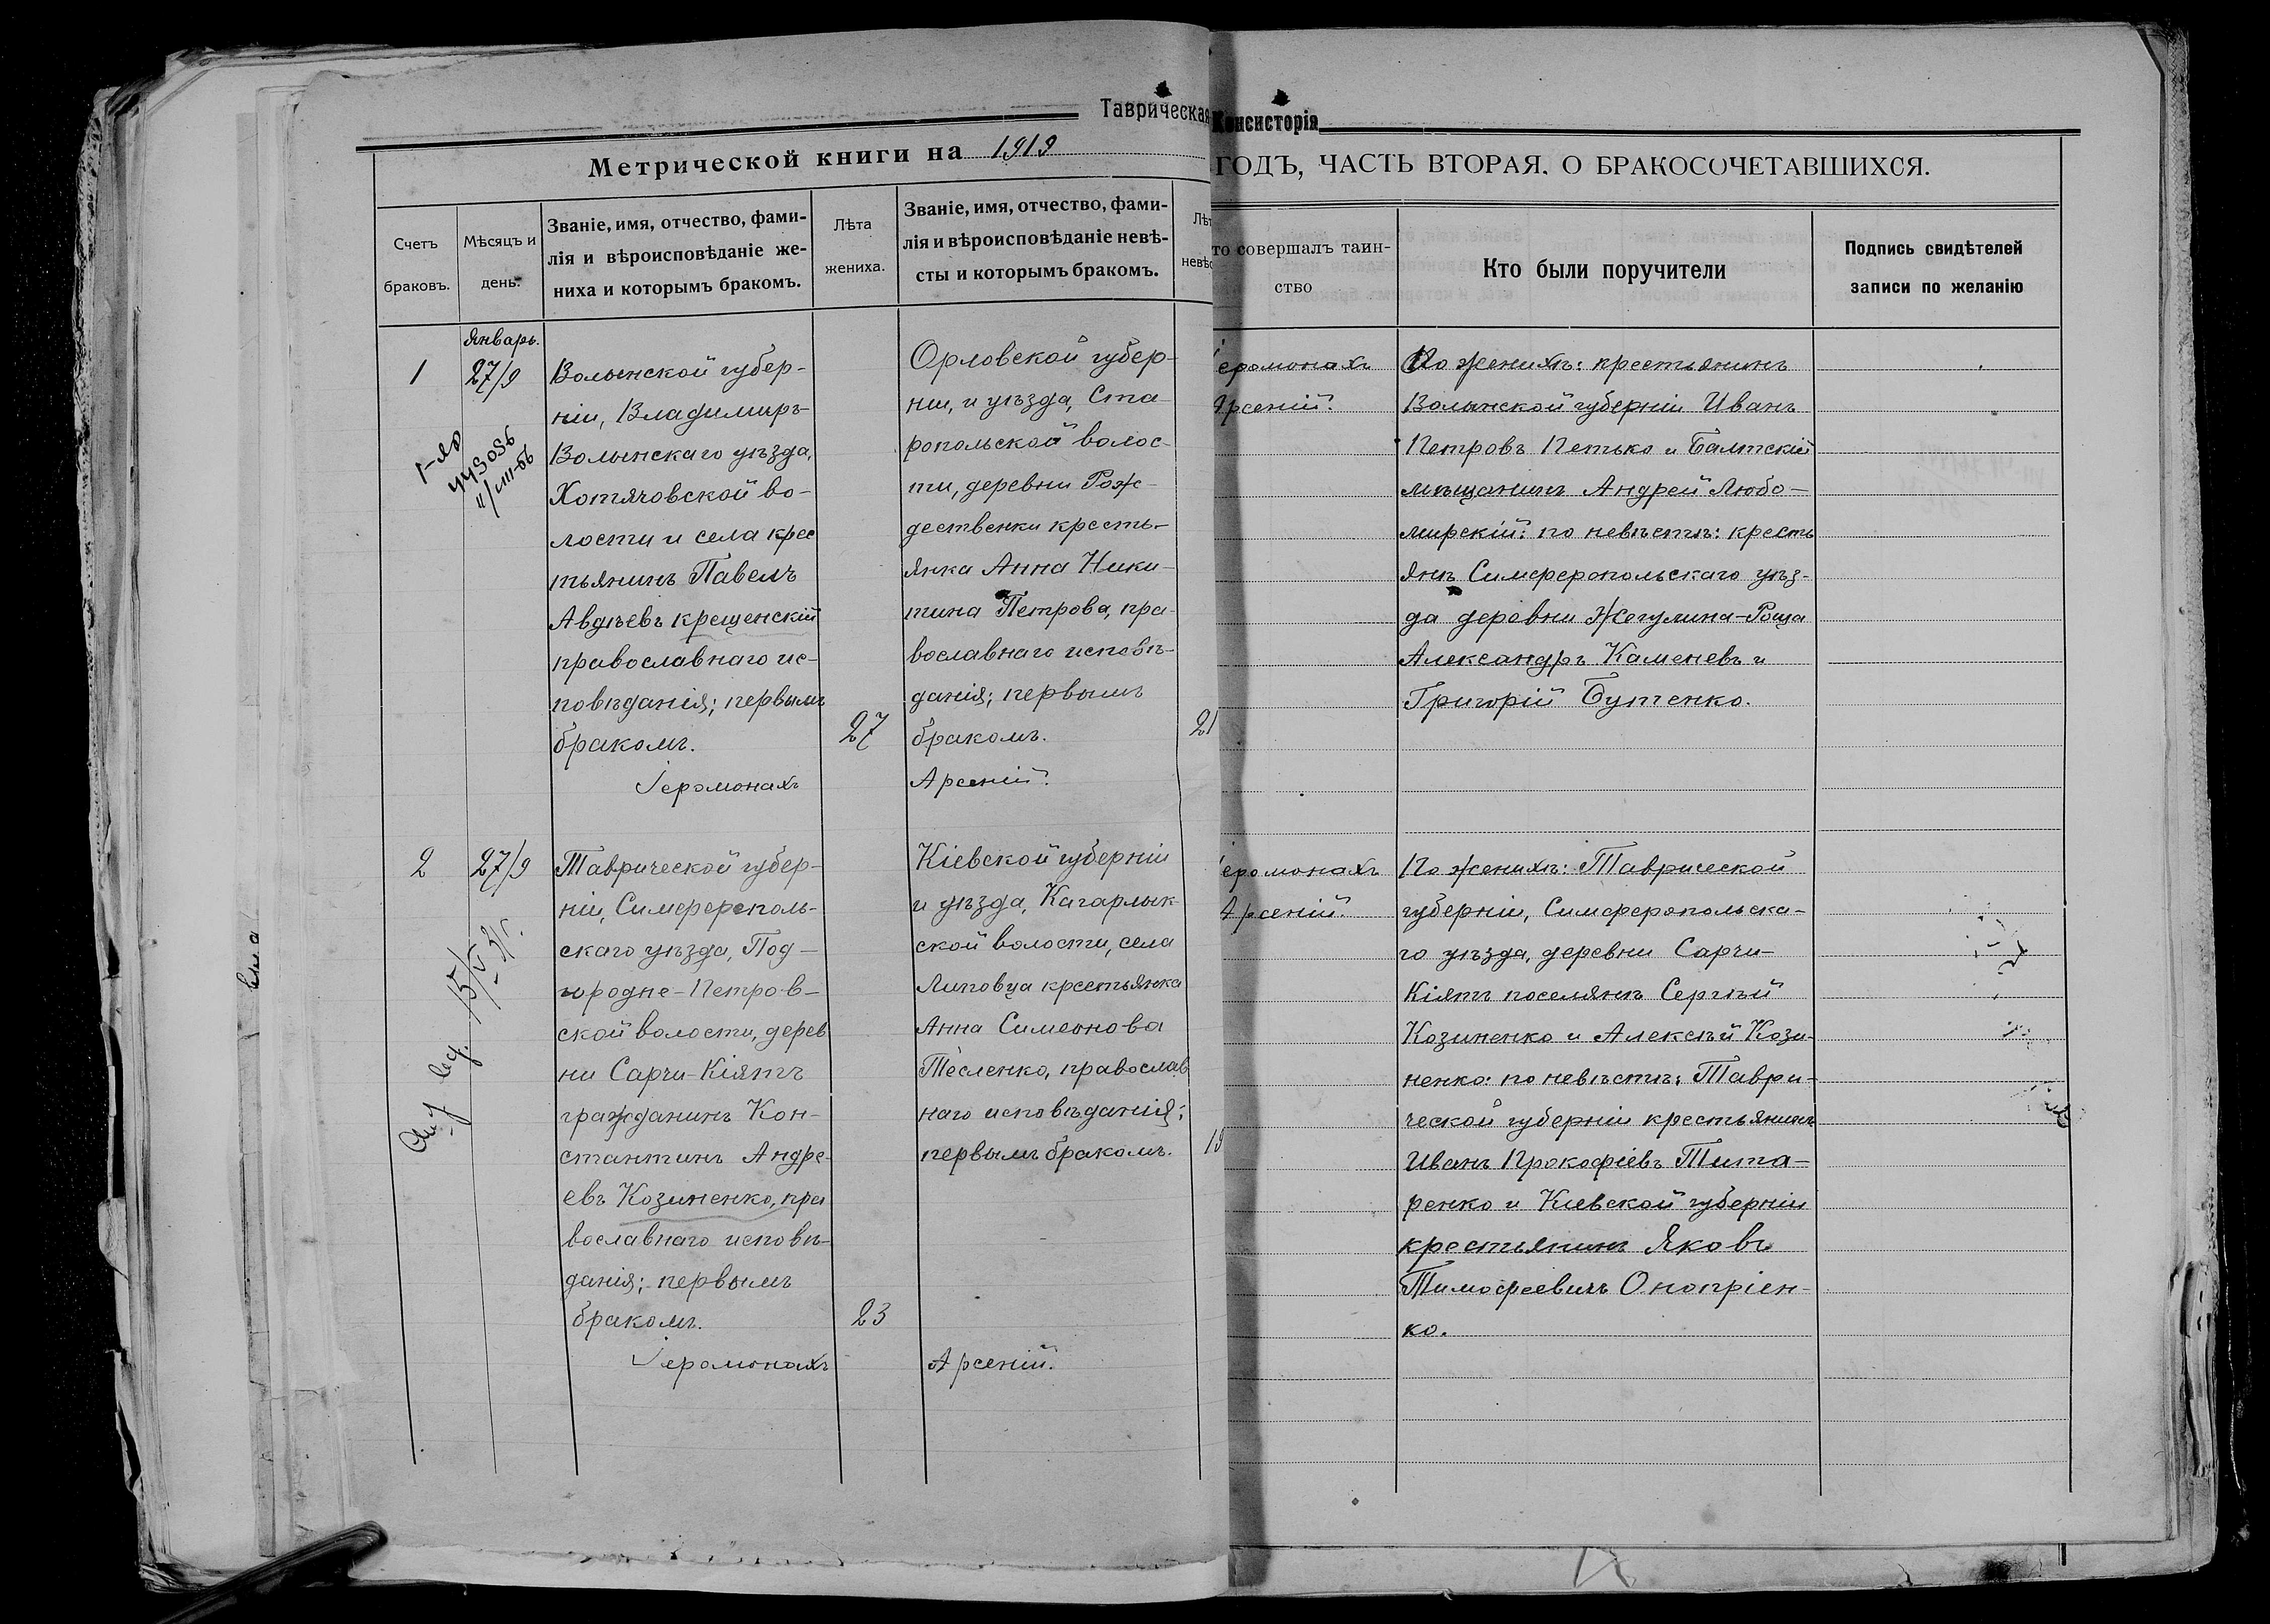 Таврическая Консисторія
Метрической книги на 1919 ГОДЪ, ЧАСТЬ ВТОРАЯ. О БРАКОСОЧЕТАВШИХСЯ.
Счетъ
браковъ.
Мѣсяцъ и
день.
Званіе, имя, отчество, фами-
лія и вѣроисповѣданіе же-
ниха и которымъ бракомъ.
Лѣта
жениха.
Званіе, имя, отчество, фами-
лія и вѣроисповѣданіе невѣ-
сты и которымъ бракомъ.
Лѣт
невѣс
то совершалъ таин-
ство
Кто были поручители
Подпись свидѣтелей
записи по желанію
1
Январь.
27/9
Волынской губер-
ніи, Владимиръ-
Волынскаго уѣзда,
Хотячовской во-
лости и села крес
тьянинъ Павелъ
Авдѣевъ крещенскій
православнаго ис-
повѣданія; первымъ
бракомъ.
27
Іеромонахъ
Орловской губер-
ніи, и уѣзда, Ста-
ропольской волос-
ти, деревни Рож-
дественки кресть-
янка Анна Ники-
тина Петрова, пра-
вославнаго исповѣ-
данія; первымъ
бракомъ.
21
Арсеній.
еромонахъ
Арсеній.
По женихѣ: крестьянинъ
Волынской губерніи Иванъ
Петровъ Петько и Балтскій
мѣщанинъ Андрей Любо-
мирскій: по невѣстѣ: кресть
янѣ Симферопольскаго уѣз-
да деревни Жегулина-Роща
Александръ Каменевъ и
Григорій Бутенко.
2
27/9
15/V 31г.
Таврической губер-
ніи, Симферополь-
скаго уѣзда, Под-
городне-Петров-
ской волости, дерев
ни Сарчи-Кіятъ
гражданинъ Кон-
стантинъ Андре-
евъ Козиненко, пра
вославнаго исповѣ-
данія; первымъ
бракомъ.
23
Іеромонахъ
Кіевской губерніи
и уѣзда, Кагарлык-
ской волости, села
Липовца крестьянка
Анна Симеонова
Тесленко, православ
наго исповѣданія;
первымъ бракомъ.
19
Арсеній.
еромонахъ
Арсеній.
По женихѣ: Таврической
губерніи, Симферопольска-
го уѣзда, деревни Сарчи-
Кіятъ поселянѣ Сергѣй
Козиненко и Алексѣй Кози-
ненко: по невѣстѣ: Таври-
ческой губерніи крестьянинъ
Иванъ Прокофіевъ Тита-
ренко и Кіевской губерніи
крестьянинъ Яковъ
Тимофеевичъ Оноприен-
ко.